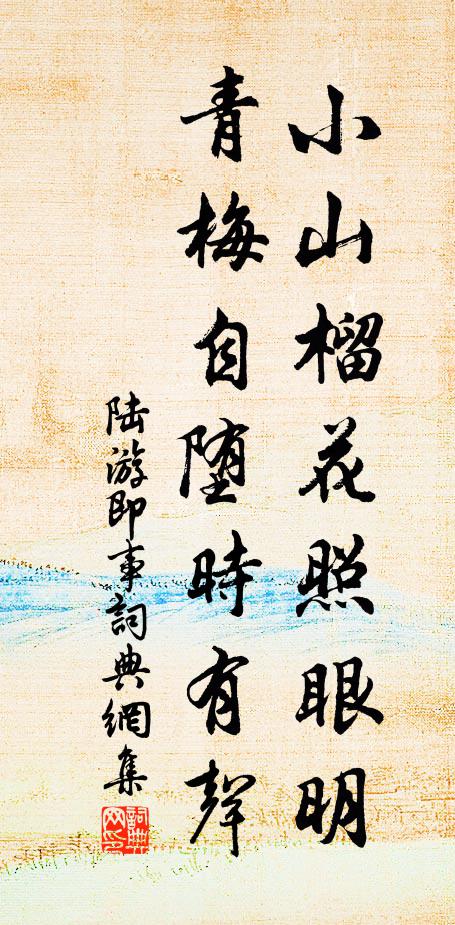 小山榴花照眼明
青梅自堕時有聲
陆游即事詞典網集
詞典網印